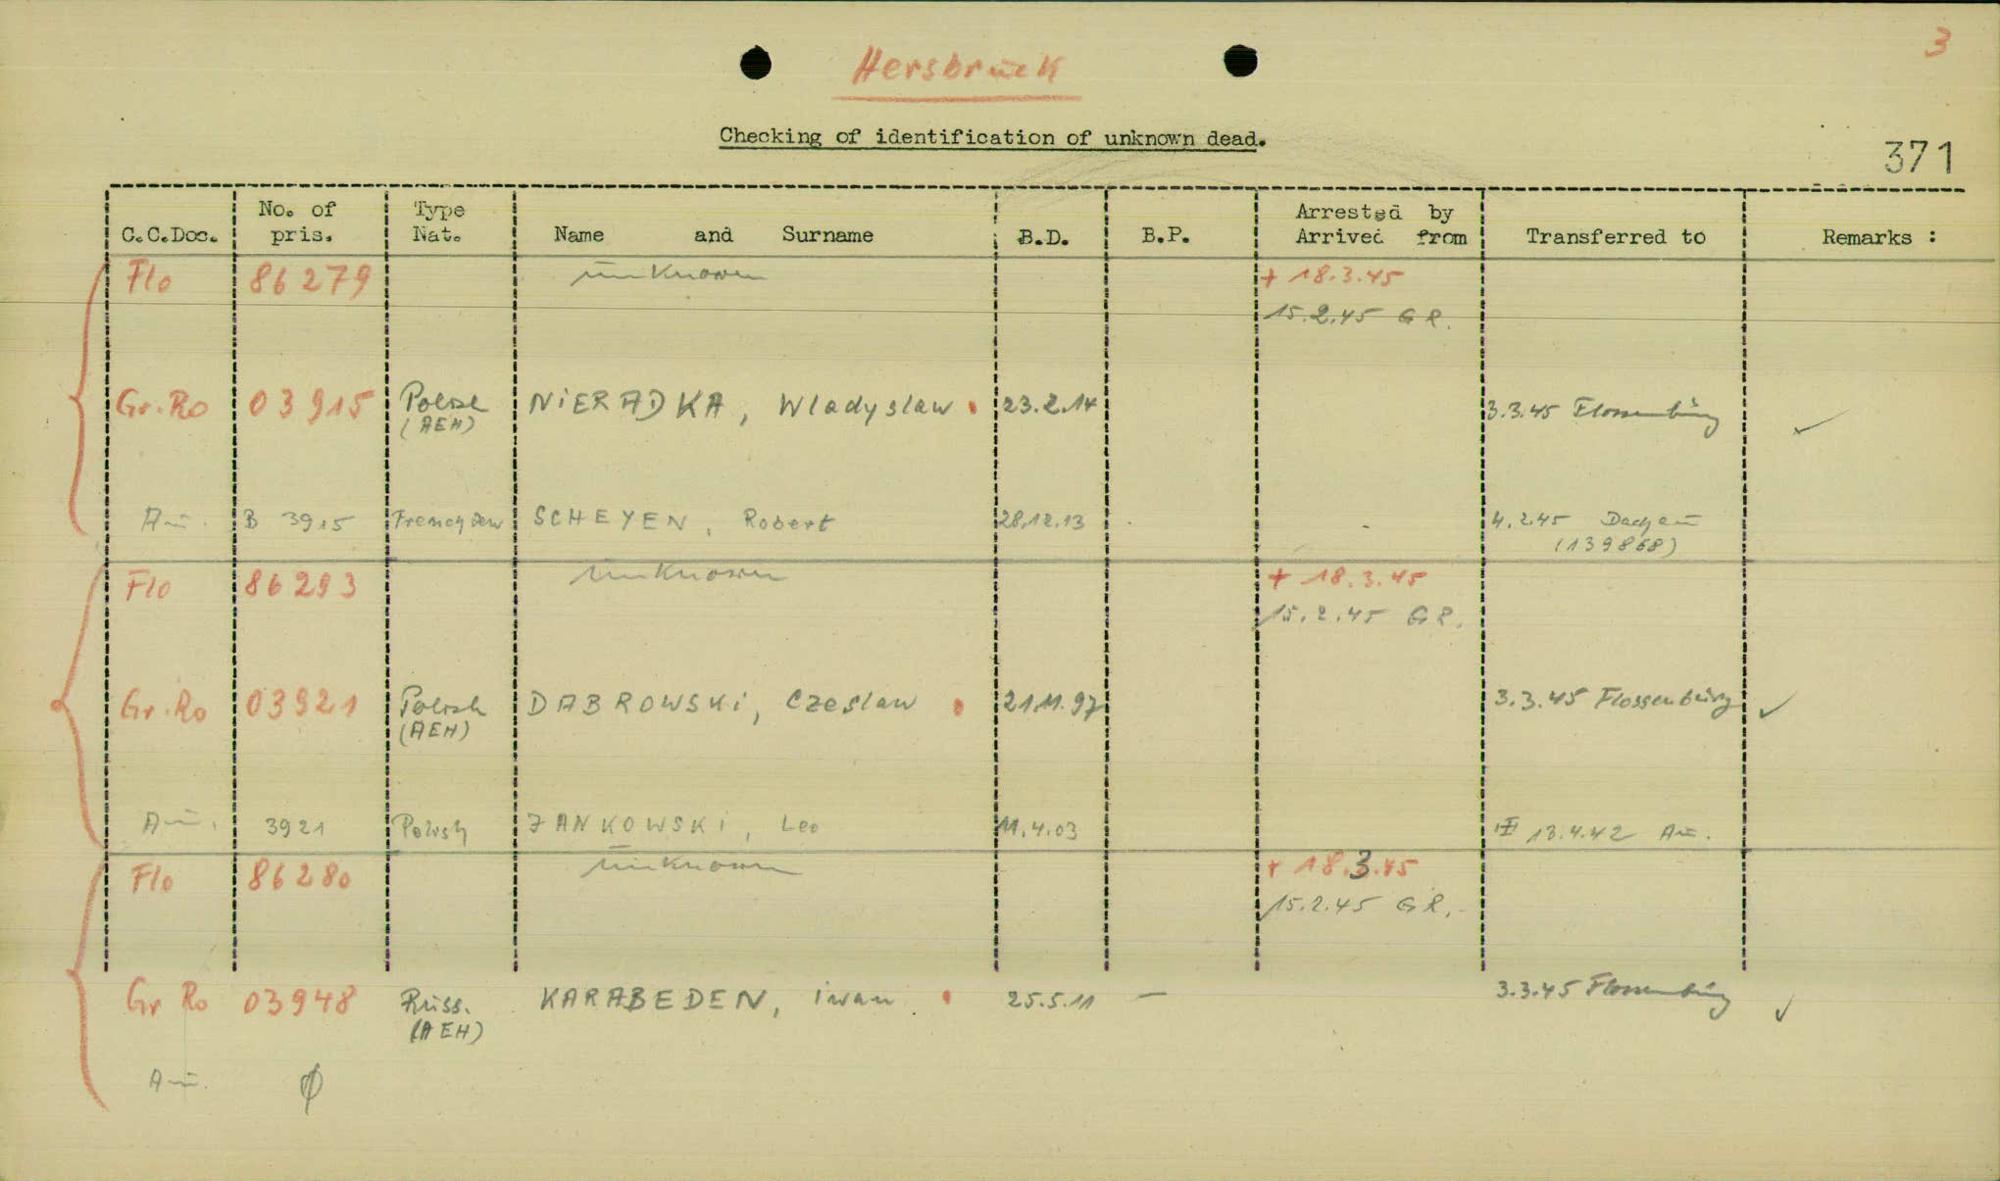 3
Hersbruck
Checking of identification of unknown dead.
371
C.C.Doc. No. of pris. Type Nat. Name and Surname B.D. B.P. Arrested by Arrived from Transferred to Remarks :
Flo 86279 unknown + 18.3.45
15.2.45 GR.
Gr.Ro 03915 Polish NIERADKA, Wladyslaw 23.2.14 3.3.45 Flossenbürg ✓
(AEH)
Au. B 3915 French Jew SCHEYEN, Robert 28.12.13 4.2.45 Dachau
(139868)
Flo 86293 unknown + 18.3.45
15.2.45 GR.
Gr.Ro 03921 Polish DABROWSKI, Czeslaw 21.11.97 3.3.45 Flossenbürg ✓
(AEH)
Au. 3921 Polish JANKOWSKI, Leo 11.4.03 13.4.42 Au.
Flo 86280 unknown + 18.3.45
15.2.45 GR.
Gr Ro 03948 Russ. KARABEDEN, iwan 25.5.11 — 3.3.45 Flossenbürg ✓
(AEH)
Au. ∅